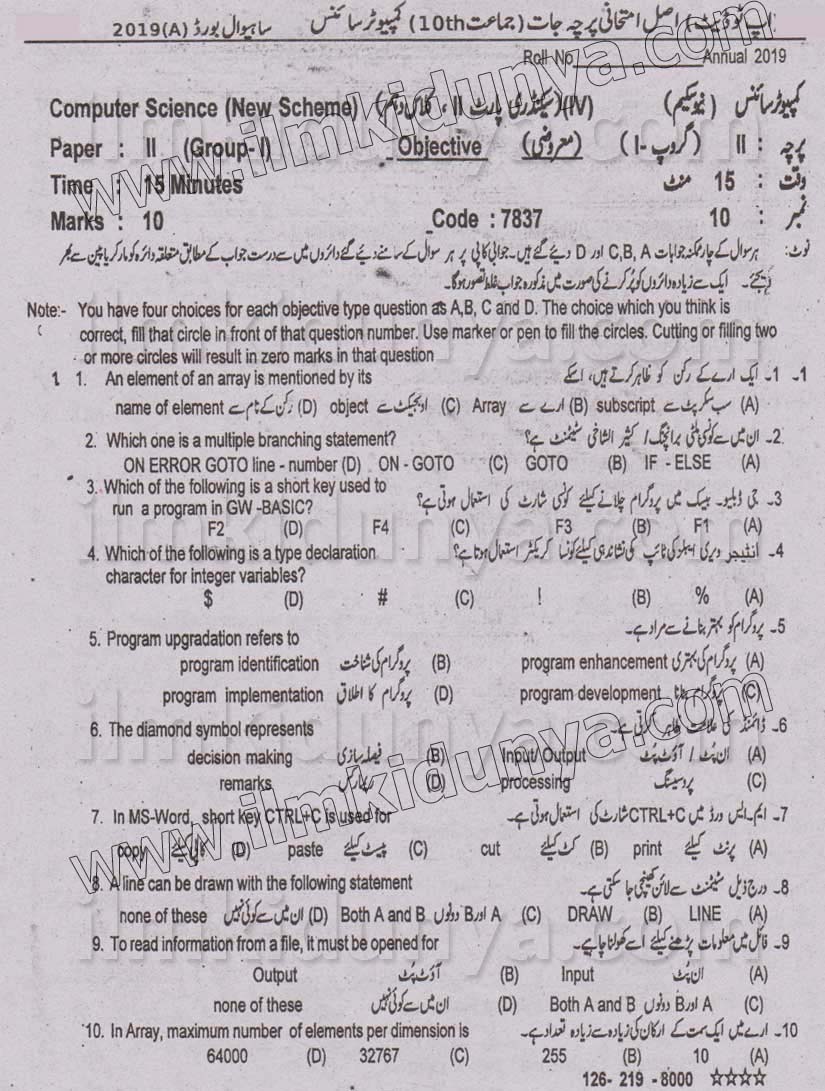 اپ ٹو ڈیٹ) اصل امتحانی پرچہ جات (جماعت 10th) کمپیوٹر سائنس ساہیوال بورڈ 2019 (A)
Roll No__________ Annual 2019
Computer Science (New Scheme) (IV)-(سیکنڈری پارٹ II ، کلاس دہم) کمپیوٹر سائنس (نیو سکیم)
Paper : II (Group- I) Objective (معروضی) پرچہ : II (گروپ -I)
Time : 15 Minutes وقت : 15 منٹ
Marks : 10 Code : 7837 نمبر : 10
نوٹ: ہر سوال کے چار ممکنہ جوابات C,B, A اور D دیئے گئے ہیں۔ جوابی کاپی پر ہر سوال کے سامنے دیئے گئے دائروں میں سے درست جواب کے مطابق متعلقہ دائرہ کو مارکر یا پین سے بھر
دیجئے۔ ایک سے زیادہ دائروں کو پُر کرنے کی صورت میں مذکورہ جواب غلط تصور ہوگا۔
Note:- You have four choices for each objective type question as A,B, C and D. The choice which you think is
correct, fill that circle in front of that question number. Use marker or pen to fill the circles. Cutting or filling two
or more circles will result in zero marks in that question
1 1. An element of an array is mentioned by its 1۔ 1۔ ایک ارے کے رکن کو ظاہر کرتے ہیں، اسکے
name of element رکن کے نام سے (D) object اوبجیکٹ سے (C) Array ارے سے (B) subscript سب سکرپٹ سے (A)
2. Which one is a multiple branching statement? 2۔ ان میں سے کونسی ملٹی برانچنگ / کثیر الشاخی سٹیٹمنٹ ہے؟
ON ERROR GOTO line - number (D) ON - GOTO (C) GOTO (B) IF - ELSE (A)
3. Which of the following is a short key used to 3۔ جی ڈبلیو۔ بیسک میں پروگرام چلانے کیلئے کونسی شارٹ کی استعمال ہوتی ہے؟
run a program in GW -BASIC?
F2 (D) F4 (C) F3 (B) F1 (A)
4. Which of the following is a type declaration 4۔ انٹیجر ویری ایبلز کی ٹائپ کی نشاندہی کیلئے کونسا کریکٹر استعمال ہوتا ہے؟
character for integer variables?
$ (D) # (C) ! (B) % (A)
5. Program upgradation refers to 5۔ پروگرام کو بہتر بنانے سے مراد ہے۔
program identification پروگرام کی شناخت (B) program enhancement پروگرام کی بہتری (A)
program implementation پروگرام کا اطلاق (D) program development پروگرام بنانا (C)
6. The diamond symbol represents 6۔ ڈائمنڈ کی علامت ظاہر کرتی ہے۔
decision making فیصلہ سازی (B) Input/ Output ان پُٹ / آؤٹ پُٹ (A)
remarks ریمارکس (D) processing پروسیسنگ (C)
7. In MS-Word, short key CTRL+C is used for 7۔ ایم۔ایس ورڈ میں CTRL+C شارٹ کی استعمال ہوتی ہے۔
copy کاپی کیلئے (D) paste پیسٹ کیلئے (C) cut کٹ کیلئے (B) print پرنٹ کیلئے (A)
8. A line can be drawn with the following statement 8۔ درج ذیل سٹیٹمنٹ سے لائن کھینچی جا سکتی ہے۔
none of these ان میں سے کوئی نہیں (D) Both A and B دونوں B اور A (C) DRAW (B) LINE (A)
9. To read information from a file, it must be opened for 9۔ فائل میں معلومات پڑھنے کیلئے اسے کھولنا چاہیے۔
Output آؤٹ پُٹ (B) Input ان پُٹ (A)
none of these ان میں سے کوئی نہیں (D) Both A and B دونوں B اور A (C)
10. In Array, maximum number of elements per dimension is 10۔ ارے میں ایک سمت کے ارکان کی زیادہ سے زیادہ تعداد ہے۔
64000 (D) 32767 (C) 255 (B) 10 (A)
126- 219 -8000 ☆☆☆☆
www.ilmkidunya.com
www.ilmkidunya.com
ilmkidunya.com
ilmkidunya.com
ilmkidunya.com
ilmkidunya.com
ilmkidunya.com